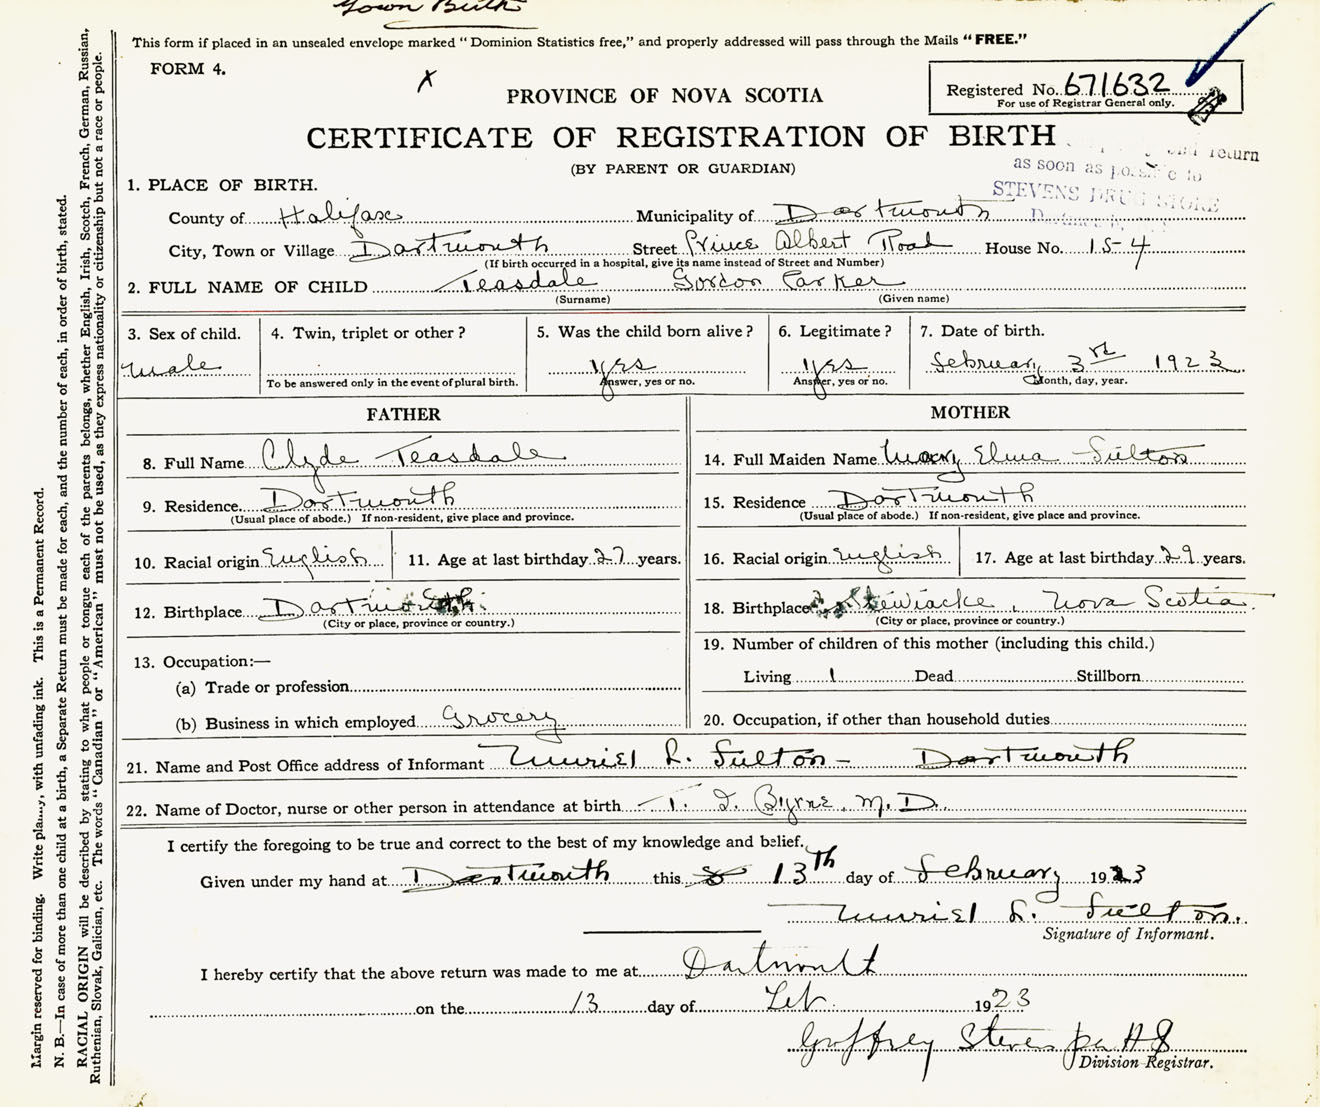 Town Birth
This form if placed in an unsealed envelope marked "Dominion Statistics free," and properly addressed will pass through the Mails "FREE."
FORM 4.
X
Registered No. 671632
For use of Registrar General only.
PROVINCE OF NOVA SCOTIA
CERTIFICATE OF REGISTRATION OF BIRTH
(BY PARENT OR GUARDIAN)
and return
as soon as possible to
STEVENS DRUG STORE
1. PLACE OF BIRTH.
County of Halifax Municipality of Dartmouth
City, Town or Village Dartmouth Street Prince Albert Road House No. 154
(If birth occurred in a hospital, give its name instead of Street and Number)
2. FULL NAME OF CHILD Teasdale Gordon Parker
(Surname) (Given name)
3. Sex of child. 4. Twin, triplet or other? 5. Was the child born alive? 6. Legitimate? 7. Date of birth.
male yes yes February 3rd 1923
To be answered only in the event of plural birth. Answer, yes or no. Answer, yes or no. Month, day, year.
FATHER
8. Full Name Clyde Teasdale
9. Residence Dartmouth
(Usual place of abode.) If non-resident, give place and province.
10. Racial origin English 11. Age at last birthday 27 years.
12. Birthplace Dartmouth
(City or place, province or country.)
13. Occupation:—
(a) Trade or profession
(b) Business in which employed Grocery
MOTHER
14. Full Maiden Name Mary Elma Fulton
15. Residence Dartmouth
(Usual place of abode.) If non-resident, give place and province.
16. Racial origin English 17. Age at last birthday 29 years.
18. Birthplace Stewiacke, Nova Scotia.
(City or place, province or country.)
19. Number of children of this mother (including this child.)
Living 1 Dead Stillborn
20. Occupation, if other than household duties
21. Name and Post Office address of Informant Muriel L. Fulton - Dartmouth
22. Name of Doctor, nurse or other person in attendance at birth T. I. Byrne, M.D.
I certify the foregoing to be true and correct to the best of my knowledge and belief.
Given under my hand at Dartmouth this 13th day of February 1923
Muriel L. Fulton.
Signature of Informant.
I hereby certify that the above return was made to me at Dartmouth
on the 13 day of Feb. 1923
Geoffrey Stevens per
Division Registrar.
Margin reserved for binding. Write plainly, with unfading ink. This is a Permanent Record.
N. B.—In case of more than one child at a birth, a Separate Return must be made for each, and the number of each, in order of birth, stated.
RACIAL ORIGIN will be described by stating to what people or tongue each of the parents belongs, whether English, Irish, Scotch, French, German, Russian,
Ruthenian, Slovak, Galician, etc. The words "Canadian" or "American" must not be used, as they express nationality or citizenship but not a race or people.